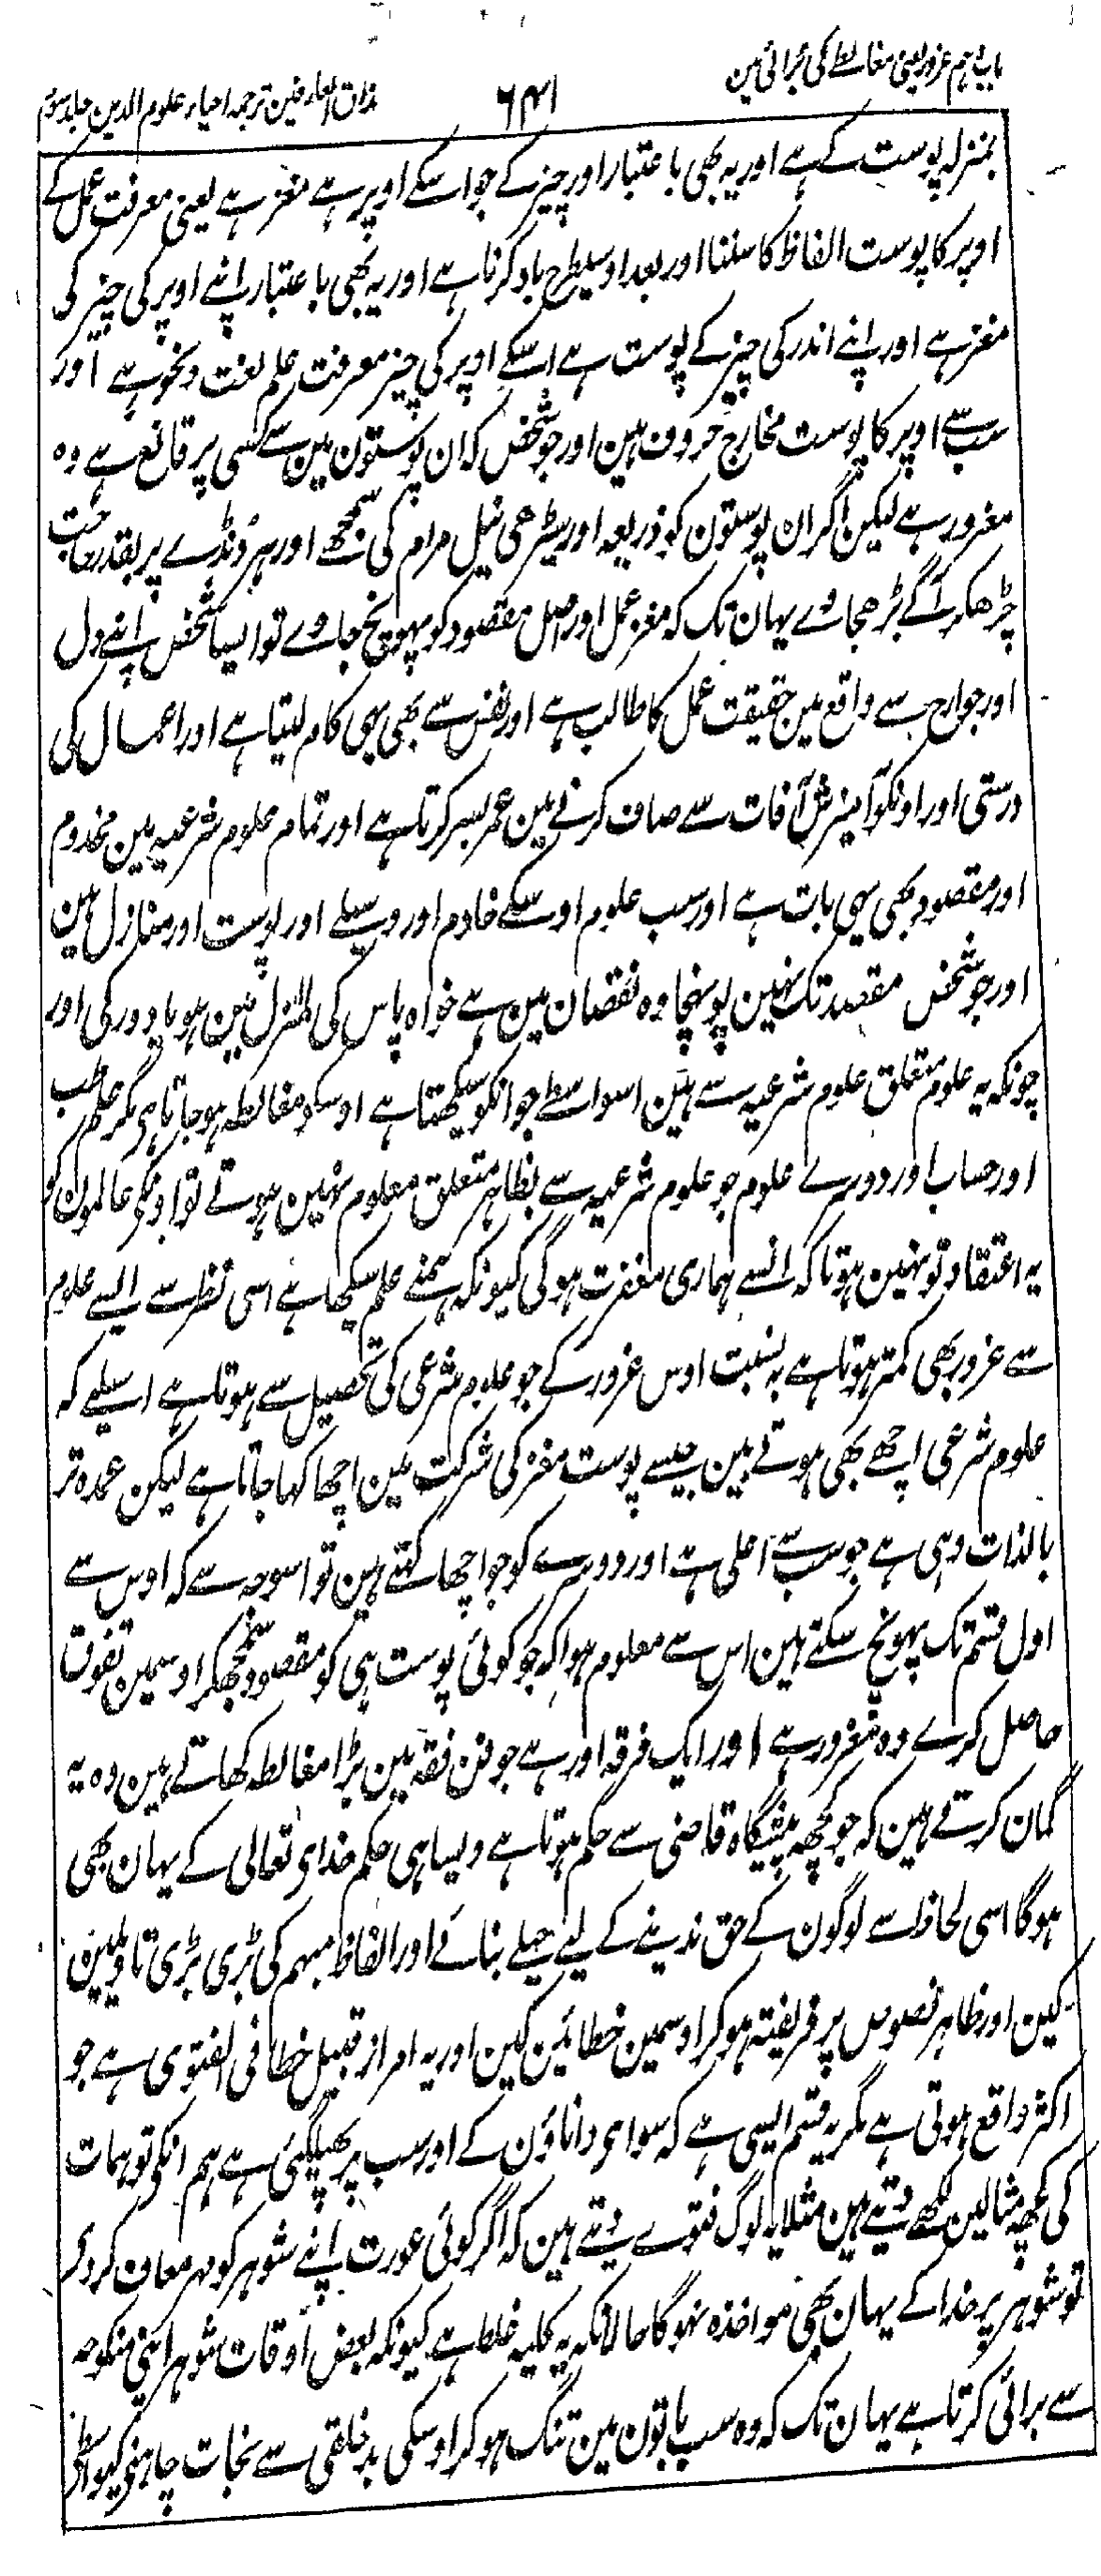 باب دہم غرور یعنی مغالطے کی برائی مین
۶۴۱
مذاق العارفین ترجمہ احیاء علوم الدین جلد سوم
بمنزلہ پوست کے ہے اور یہ بھی باعتبار اور چیز کے جو اسکے اوپر ہے مغز ہے یعنی معرفت عمل کے
اوپر کا پوست الفاظ کا سننا اور بعد اوسیطرح یاد کرنا ہے اور یہ بھی باعتبار اپنے اوپر کی چیز کی
مغز ہے اور اپنے اندر کی چیز کے پوست ہے اسکے اوپر کی چیز معرفت علم لغت و نحو ہے اور
سب سے اوپر کا پوست مخارج حروف ہین اور جو شخص کہ ان پوستون مین سے کسی پر قانع ہے وہ
مغرور ہے لیکن اگر ان پوستون کو ذریعہ اور سیڑھی نیل مرام کی سمجھے اور ہر ڈنڈے پر بقدر حاجت
چڑھکر آگے بڑھجاوے یہان تک کہ مغز عمل اور اصل مقصود کو پہونچ جاوے تو ایسا شخص اپنے دل
اور جوارح سے واقع مین حقیقت عمل کا طالب ہے اور نفس سے بھی یہی کام لیتا ہے اور اعمال کی
درستی اور اونکو آمیزش آفات سے صاف کرنے مین عمر بسر کرتا ہے اور تمام علوم شرعیہ مین مخدوم
اور مقصود بھی یہی بات ہے اور سب علوم اوسکے خادم اور وسیلے اور پوست اور منازل ہین
اور جو شخص مقصد تک نہین پہونچا وہ نقصان مین ہے خواہ پاس کی منزل مین ہو یا دور کی اور
چونکہ یہ علوم متعلق علوم شرعیہ سے ہین اسواسطے جو انکو سیکھتا ہے اوسکو مغالطہ ہو جاتا ہی مگر علم طب
اور حساب اور دوسرے علوم جو علوم شرعیہ سے بظاہر متعلق معلوم نہین ہوتے تو اونکی عالمون کو
یہ اعتقاد تو نہین ہوتا کہ انسے ہماری مغفرت ہوگی کیونکہ ہمنے علم سیکھا ہے اسی نظر سے ایسے علوم
سے غرور بھی کمتر ہوتا ہے بہ نسبت اوس غرور کے جو علوم شرعی کی تحصیل سے ہوتا ہے اسلیے کہ
علوم شرعی اچھے بھی ہوتے ہین جیسے پوست مغز کی شرکت مین اچھا کہا جاتا ہے لیکن عمدہ تر
بالذات وہی ہے جو سب سے اعلی ہے اور دوسرے کو جو اچھا کہتے ہین تو اسوجہ سے کہ اوس سے
اول قسم تک پہونچ سکتے ہین اس سے معلوم ہوا کہ جو کوئی پوست ہی کو مقصود سمجھکر اوسمین تفوق
حاصل کرے وہ مغرور ہے اور ایک فرقہ اور ہے جو فن فقہ مین بڑا مغالطہ کھاتے ہین وہ یہ
گمان کرتے ہین کہ جو کچھ پیشگاہ قاضی سے حکم ہوتا ہے ویسا ہی حکم خدای تعالی کے یہان بھی
ہوگا اسی لحاظ سے لوگون کے حق ندینے کے لیے حیلے بنائے اور الفاظ مبہم کی بڑی بڑی تاویلین
کین اور ظاہر نصوص پر فریفتہ ہوکر اوسمین خطائین کین اور یہ امر از قبیل خطا فی الفتوی ہے جو
اکثر واقع ہوتی ہے مگر یہ قسم ایسی ہے کہ سوای داناؤن کے اور سب پر پھیلگئی ہے ہم انکی توہمات
کی کچھ مثالین لکھے دیتے ہین مثلا یہ لوگ فتوے دیتے ہین کہ اگر کوئی عورت اپنے شوہر کو مہر معاف کردے
تو شوہر پر خدا کے یہان بھی مواخذہ نہوگا حالانکہ یہ کلیہ غلط ہے کیونکہ بعض اوقات شوہر اپنی منکوحہ
سے برائی کرتا ہے یہان تک کہ وہ سب باتون مین تنگ ہوکر اوسکی بدخلقی سے نجات چاہنے کیواسطے